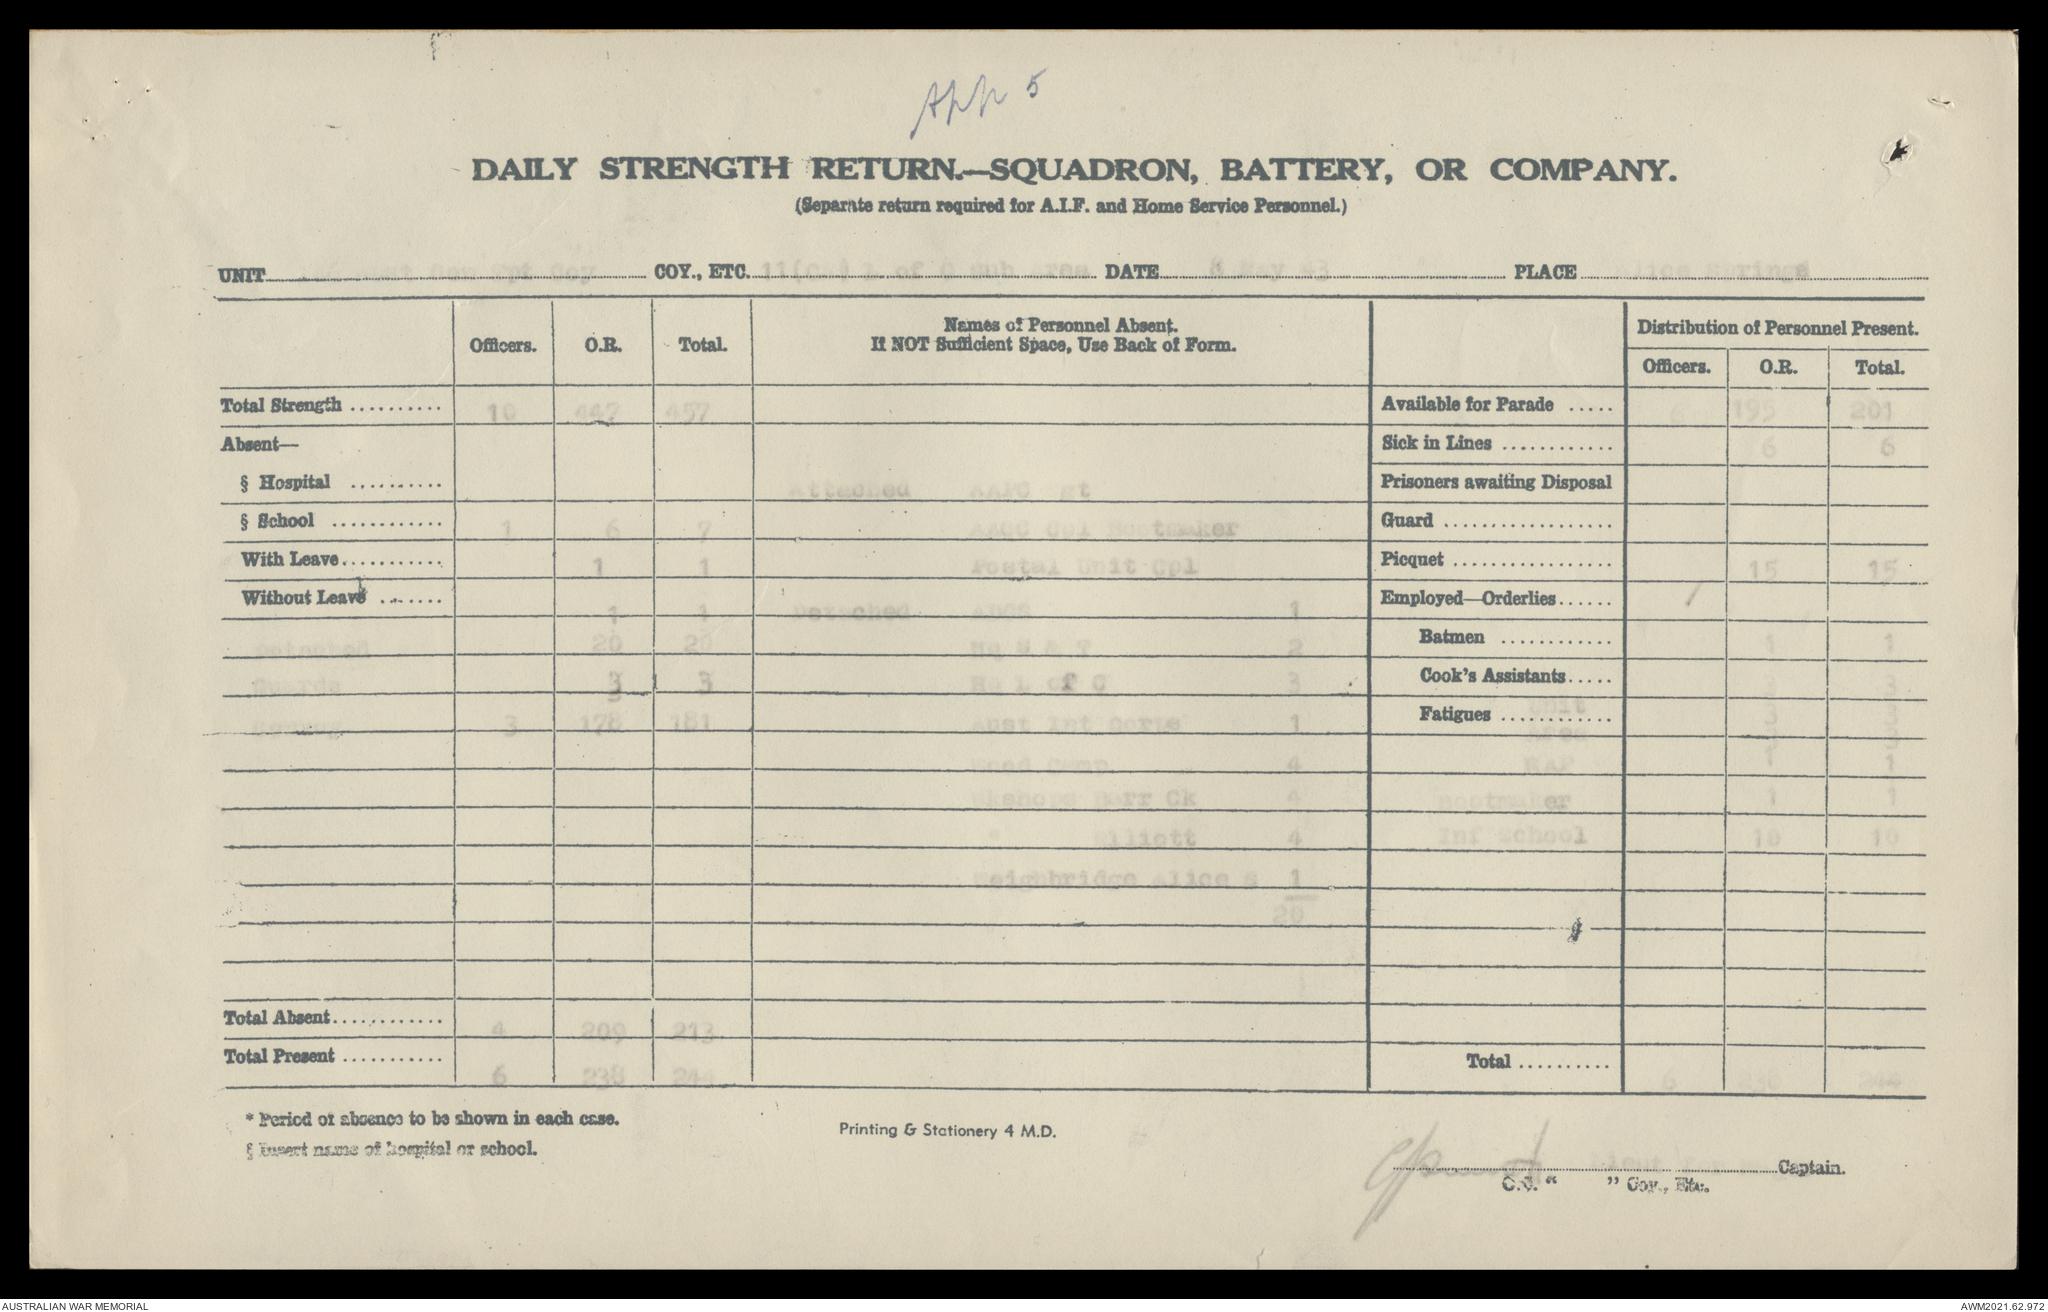 App 5
DAILY STRENGTH RETURN.—SQUADRON, BATTERY, OR COMPANY.
(Separate return required for A.I.F. and Home Service Personnel.)
UNIT Coy COY., ETC. 11(Aus) L of C Sub Area DATE May 43 PLACE Alice Springs
Officers. O.R. Total. Names of Personnel Absent. If NOT Sufficient Space, Use Back of Form. Distribution of Personnel Present.
Officers. O.R. Total.
Total Strength .......... 10 447 457 Available for Parade ..... 6 195 201
Absent— Sick in Lines ............ 6 6
§ Hospital .......... Attached AAPC Sgt Prisoners awaiting Disposal
§ School ............ 1 6 7 AAOC Cpl Bootmaker Guard .................
With Leave........... 1 1 Postal Unit Cpl Picquet ................ 15 15
Without Leave ....... 1 1 Detached 1 Employed—Orderlies......
Detached 20 20 Hq S & T 2 Batmen ............ 1 1
Guards 3 3 Hq L of C 3 Cook's Assistants..... 3 3
3 178 181 Aust Int Corps 1 Fatigues ............ Unit 3 3
Area 3 3
4 RAP 1 1
Wkshops Barr Ck 4 Bootmaker 1 1
" Elliott 4 Inf School 10 10
Weighbridge Alice S 1
20
Total Absent............ 4 209 213
Total Present ........... 6 238 244 Total .......... 6 238 244
* Period of absence to be shown in each case.
§ Insert name of hospital or school.
Printing & Stationery 4 M.D.
Lieut for Captain.
O.C. " " Coy., Etc.
AUSTRALIAN WAR MEMORIAL
AWM2021.62.972